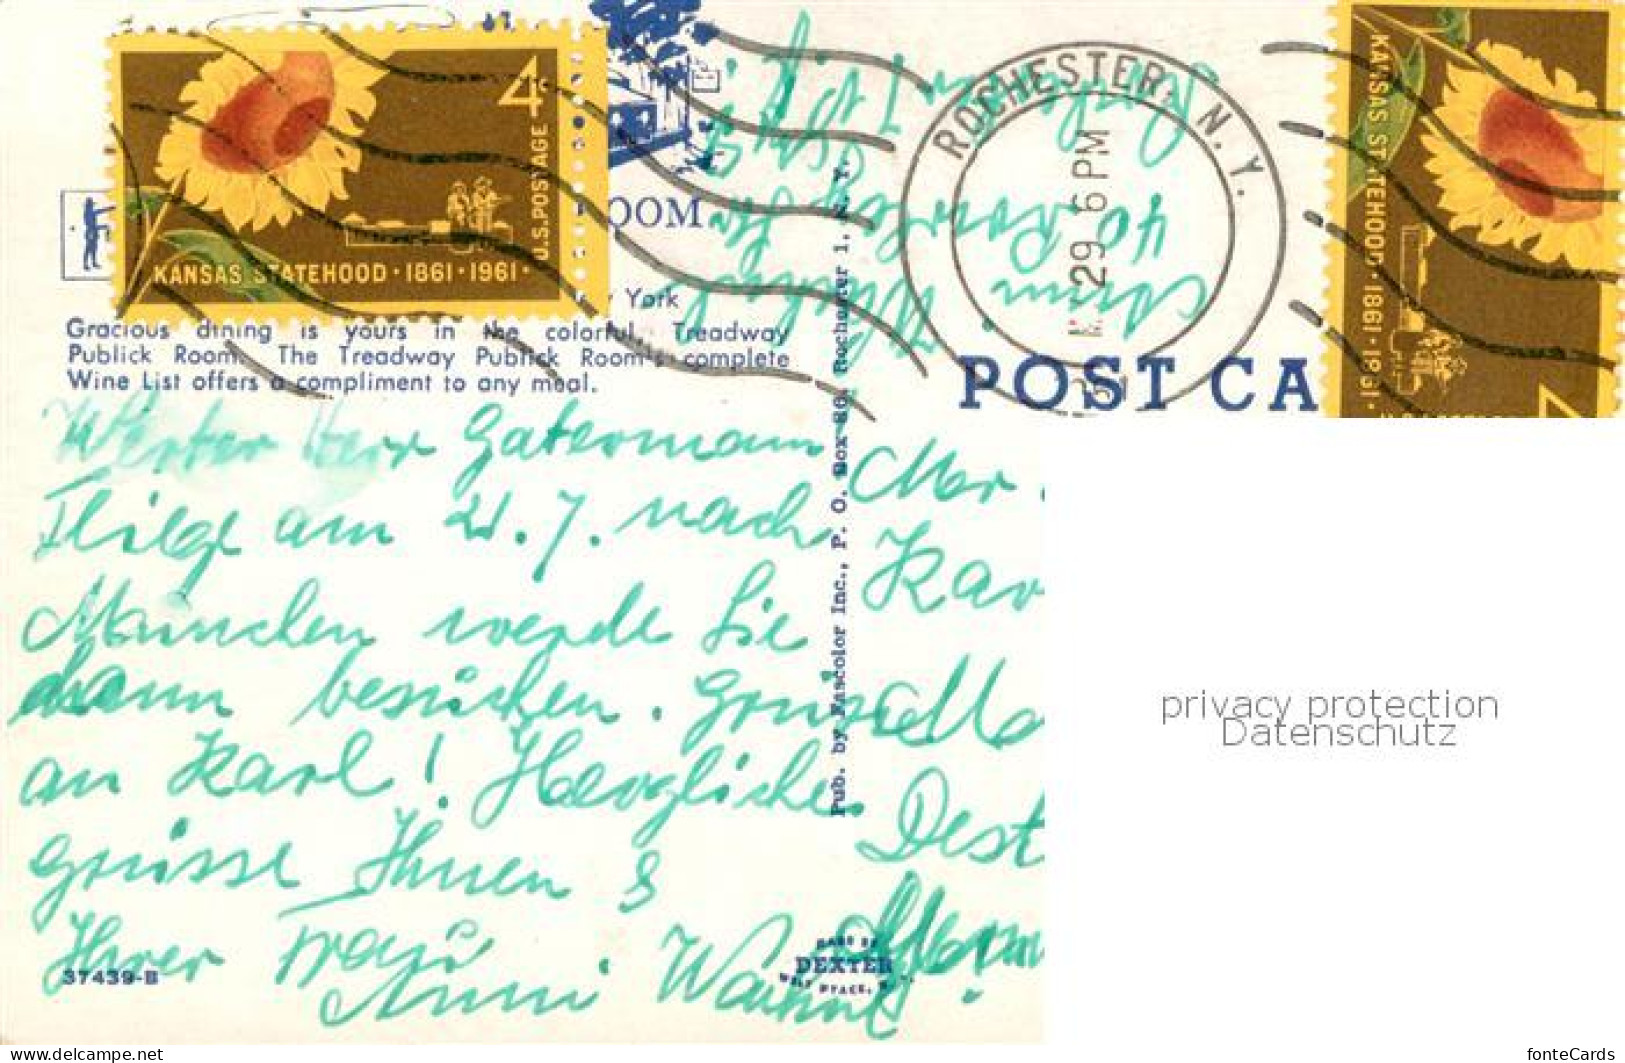 4c
U.S.POSTAGE
KANSAS STATEHOOD · 1861 · 1961 ·
ROCHESTER, N.Y.
29 6 PM
KANSAS STATEHOOD · 1861 · 1961 ·
OOM
York
Gracious dining is yours in the colorful, Treadway
Publick Room. The Treadway Publick Room's complete
Wine List offers a compliment to any meal.
POST CA
Pub. by Fascolor Inc., P. O. Box 86, Rochester 1, N. Y.
Werter Herr Gatermann
Fliege am 21. 7. nach
München werde Sie
dann besuchen. Grüsse
an Karl! Herzliche
Grüsse Ihnen &
Ihrer Frau
Anni
Mr.
Kar
Dest
37439-B
MADE BY
DEXTER
WEST NYACK, N.Y.
privacy protection
Datenschutz
www.delcampe.net
fonteCards